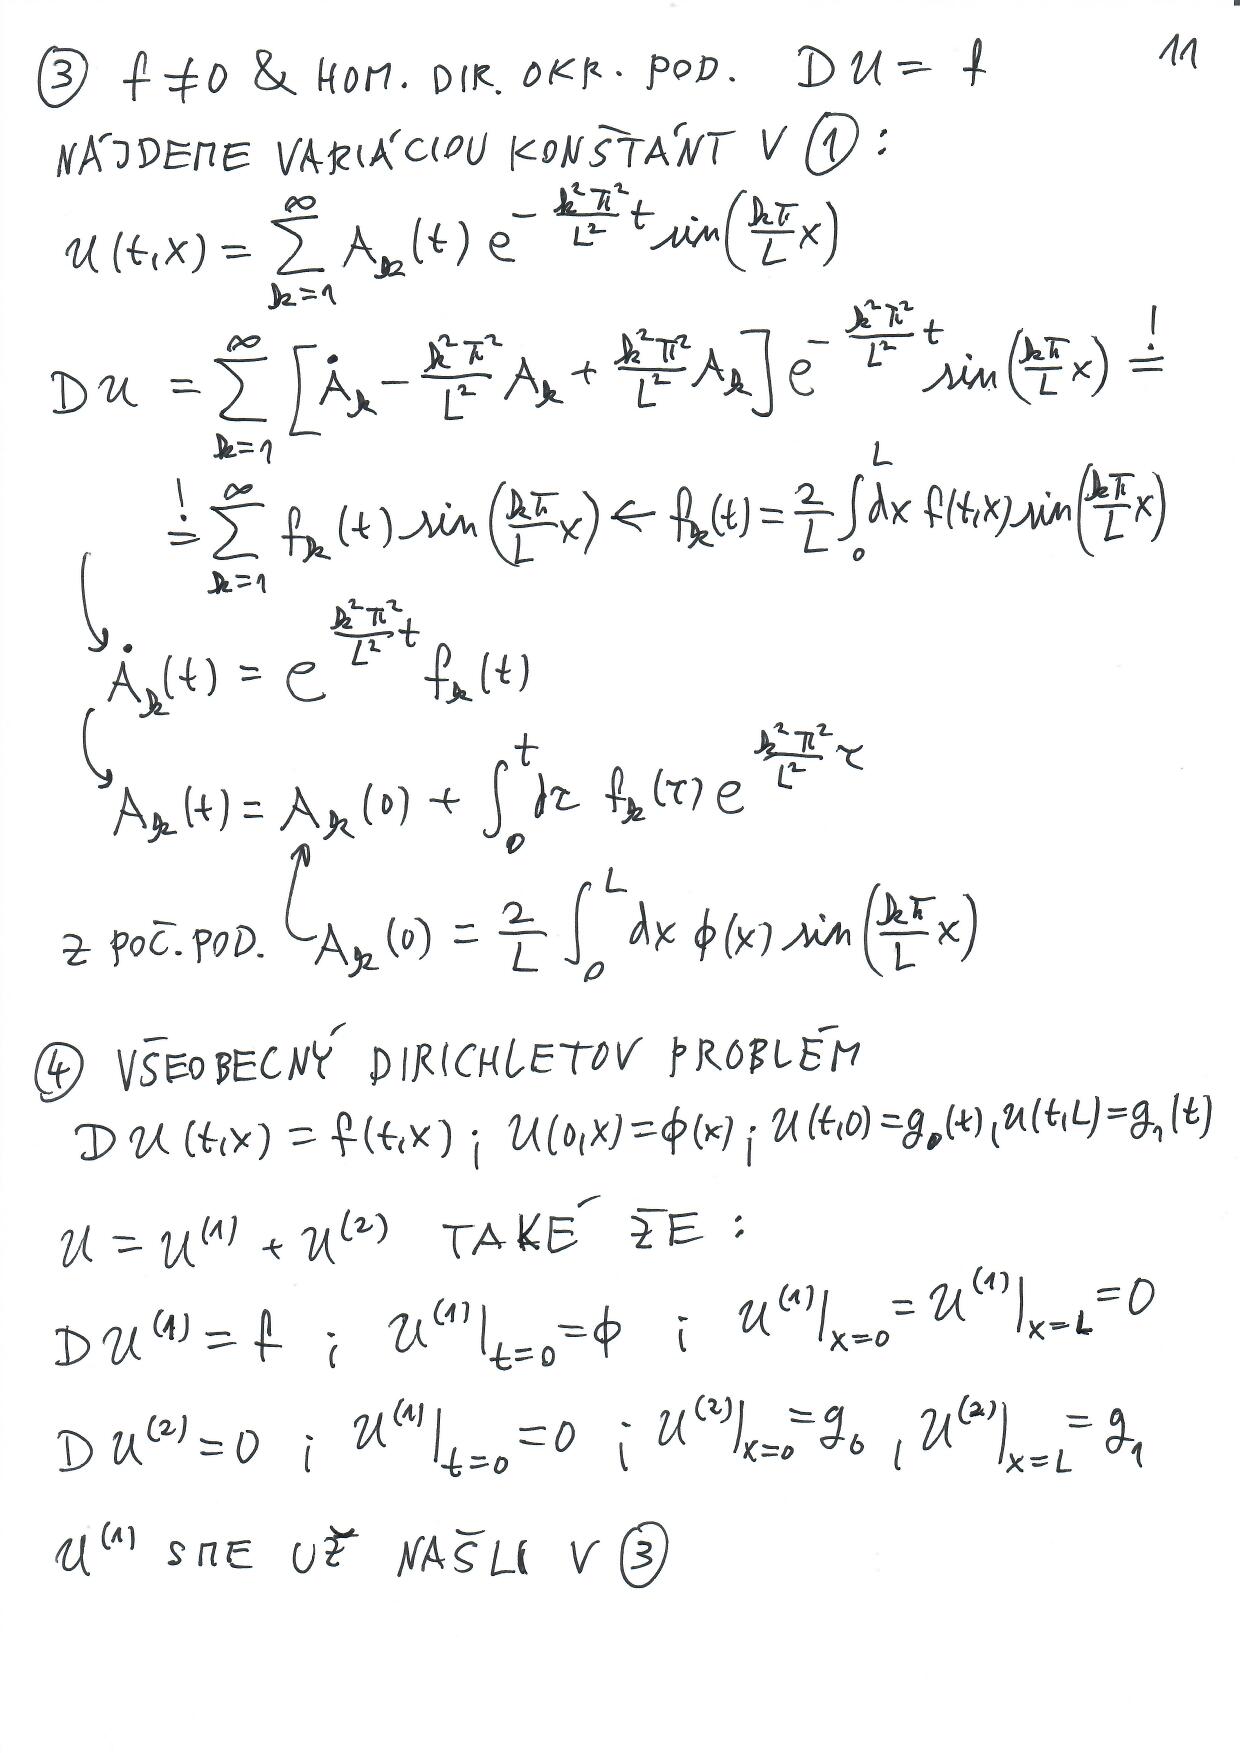 11
③ f≠0 & HOM. DIR. OKR. POD. DU = f
NÁJDEME VARIÁCIOU KONŠTÁNT V ①:
u(t,x) = ∑_{k=1}^{∞} A_k(t) e^{-\frac{k²π²}{L²}t} sin(\frac{kπ}{L}x)
DU = ∑_{k=1}^{∞} [Ȧ_k - \frac{k²π²}{L²} A_k + \frac{k²π²}{L²} A_k] e^{-\frac{k²π²}{L²}t} sin(\frac{kπ}{L}x) \overset{!}{=}
\overset{!}{=} ∑_{k=1}^{∞} f_k(t) sin(\frac{kπ}{L}x) ← f_k(t) = \frac{2}{L} ∫_0^L dx f(t,x) sin(\frac{kπ}{L}x)
Ȧ_k(t) = e^{\frac{k²π²}{L²}t} f_k(t)
A_k(t) = A_k(0) + ∫_0^t dτ f_k(τ) e^{\frac{k²π²}{L²}τ}
Z POČ. POD. A_k(0) = \frac{2}{L} ∫_0^L dx ϕ(x) sin(\frac{kπ}{L}x)
④ VŠEOBECNÝ DIRICHLETOV PROBLÉM
DU(t,x) = f(t,x) ; U(0,x) = ϕ(x) ; U(t,0) = g_0(t), U(t,L) = g_1(t)
U = U^{(1)} + U^{(2)} TAKÉ ŽE :
DU^{(1)} = f ; U^{(1)}|_{t=0} = ϕ ; U^{(1)}|_{x=0} = U^{(1)}|_{x=L} = 0
DU^{(2)} = 0 ; U^{(1)}|_{t=0} = 0 ; U^{(2)}|_{x=0} = g_0 , U^{(2)}|_{x=L} = g_1
U^{(1)} SME UŽ NAŠLI V ③